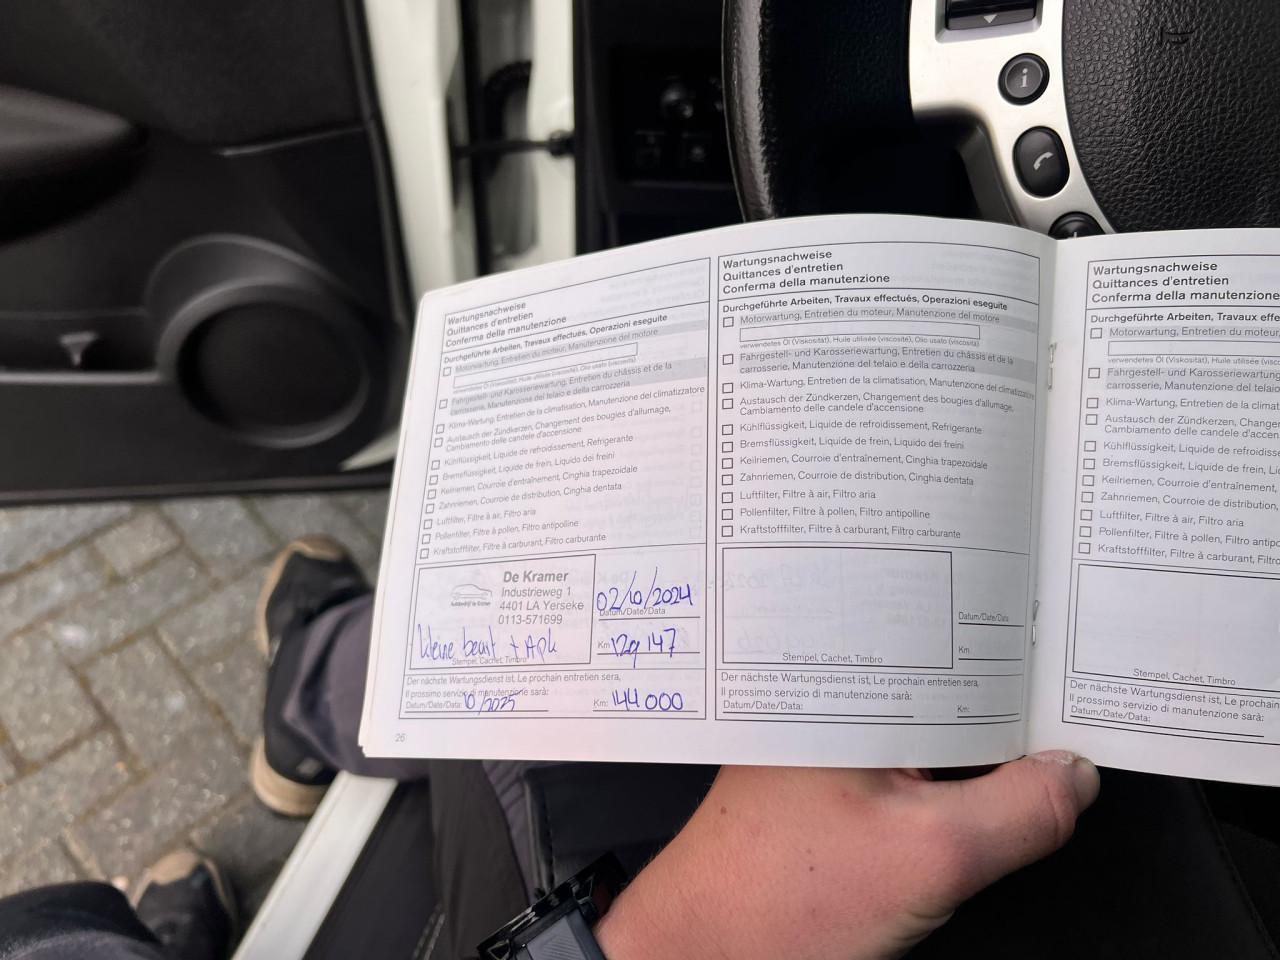 i
Wartungsnachweise
Quittances d'entretien
Conferma della manutenzione
Durchgeführte Arbeiten, Travaux effectués, Operazioni eseguite
Motorwartung, Entretien du moteur, Manutenzione del motore
verwendetes Öl (Viskosität), Huile utilisée (viscosité), Olio usato (viscosità)
Fahrgestell- und Karosseriewartung, Entretien du châssis et de la
carrosserie, Manutenzione del telaio e della carrozzeria
Klima-Wartung, Entretien de la climatisation, Manutenzione del climatizzatore
Austausch der Zündkerzen, Changement des bougies d'allumage,
Cambiamento delle candele d'accensione
Kühlflüssigkeit, Liquide de refroidissement, Refrigerante
Bremsflüssigkeit, Liquide de frein, Liquido dei freini
Keilriemen, Courroie d'entraînement, Cinghia trapezoidale
Zahnriemen, Courroie de distribution, Cinghia dentata
Luftfilter, Filtre à air, Filtro aria
Pollenfilter, Filtre à pollen, Filtro antipolline
Kraftstofffilter, Filtre à carburant, Filtro carburante
De Kramer
Industrieweg 1
4401 LA Yerseke
0113-571699
Autobedrijf de Kramer
kleine beurt + Apk
Stempel, Cachet, Timbro
02/10/2024
Datum/Date/Data
Km 129 147
Der nächste Wartungsdienst ist, Le prochain entretien sera,
Il prossimo servizio di manutenzione sarà:
Datum/Date/Data: 10/2025 Km: 144 000
26
Wartungsnachweise
Quittances d'entretien
Conferma della manutenzione
Durchgeführte Arbeiten, Travaux effectués, Operazioni eseguite
Motorwartung, Entretien du moteur, Manutenzione del motore
verwendetes Öl (Viskosität), Huile utilisée (viscosité), Olio usato (viscosità)
Fahrgestell- und Karosseriewartung, Entretien du châssis et de la
carrosserie, Manutenzione del telaio e della carrozzeria
Klima-Wartung, Entretien de la climatisation, Manutenzione del climatizzatore
Austausch der Zündkerzen, Changement des bougies d'allumage,
Cambiamento delle candele d'accensione
Kühlflüssigkeit, Liquide de refroidissement, Refrigerante
Bremsflüssigkeit, Liquide de frein, Liquido dei freini
Keilriemen, Courroie d'entraînement, Cinghia trapezoidale
Zahnriemen, Courroie de distribution, Cinghia dentata
Luftfilter, Filtre à air, Filtro aria
Pollenfilter, Filtre à pollen, Filtro antipolline
Kraftstofffilter, Filtre à carburant, Filtro carburante
Datum/Date/Data
Km
Stempel, Cachet, Timbro
Der nächste Wartungsdienst ist, Le prochain entretien sera,
Il prossimo servizio di manutenzione sarà:
Datum/Date/Data: Km:
Wartungsnachweise
Quittances d'entretien
Conferma della manutenzione
Durchgeführte Arbeiten, Travaux effe
Motorwartung, Entretien du moteur, M
verwendetes Öl (Viskosität), Huile utilisée (visc
Fahrgestell- und Karosseriewartung,
carrosserie, Manutenzione del telaio
Klima-Wartung, Entretien de la climat
Austausch der Zündkerzen, Change
Cambiamento delle candele d'acce
Kühlflüssigkeit, Liquide de refroidisse
Bremsflüssigkeit, Liquide de frein, Li
Keilriemen, Courroie d'entraînement,
Zahnriemen, Courroie de distribution,
Luftfilter, Filtre à air, Filtro aria
Pollenfilter, Filtre à pollen, Filtro antipo
Kraftstofffilter, Filtre à carburant, Filtr
Stempel, Cachet, Timbro
Der nächste Wartungsdienst ist, Le prochain
Il prossimo servizio di manutenzione sarà:
Datum/Date/Data: